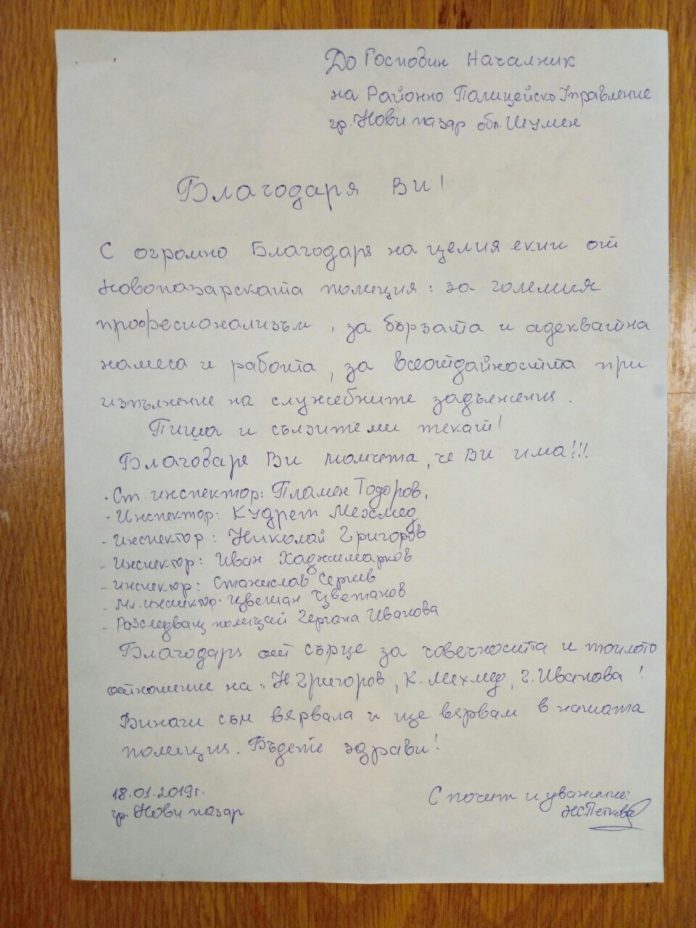 До Господин Началник
на Районно Полицейско Управление
гр. Нови пазар обл. Шумен
Благодаря Ви!
С огромно Благодаря на целия екип от
Новопазарската полиция: за големия
професионализъм, за бързата и адекватна
намеса и работа, за всеотдайността при
изпълнение на служебните задължения.
Пиша и сълзите ми текат!
Благодаря Ви момчета, че Ви има!!!
- Ст. инспектор: Пламен Тодоров,
- Инспектор: Кудрет Мехмед
- инспектор: Николай Григоров
- Инспектор: Иван Хаджимарков
- инспектор: Станислав Сергиев
- Мл. инспектор: Цветан Цветанов
- Разследващ полицай Гергана Иванова
Благодаря от сърце за човечността и топлото
отношение на: Н Григоров, К. Мехмед, Г. Иванова!
Винаги съм вярвала и ще вярвам в нашата
полиция. Бъдете здрави!
18.01.2019г.
гр. Нови пазар
С почит и уважение: